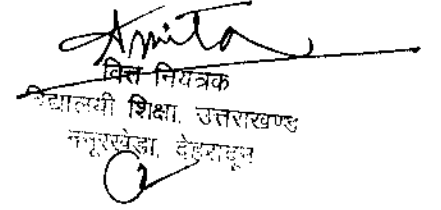 Amita
वित्त नियंत्रक
विद्यालयी शिक्षा, उत्तराखण्ड
ननूरखेडा, देहरादून